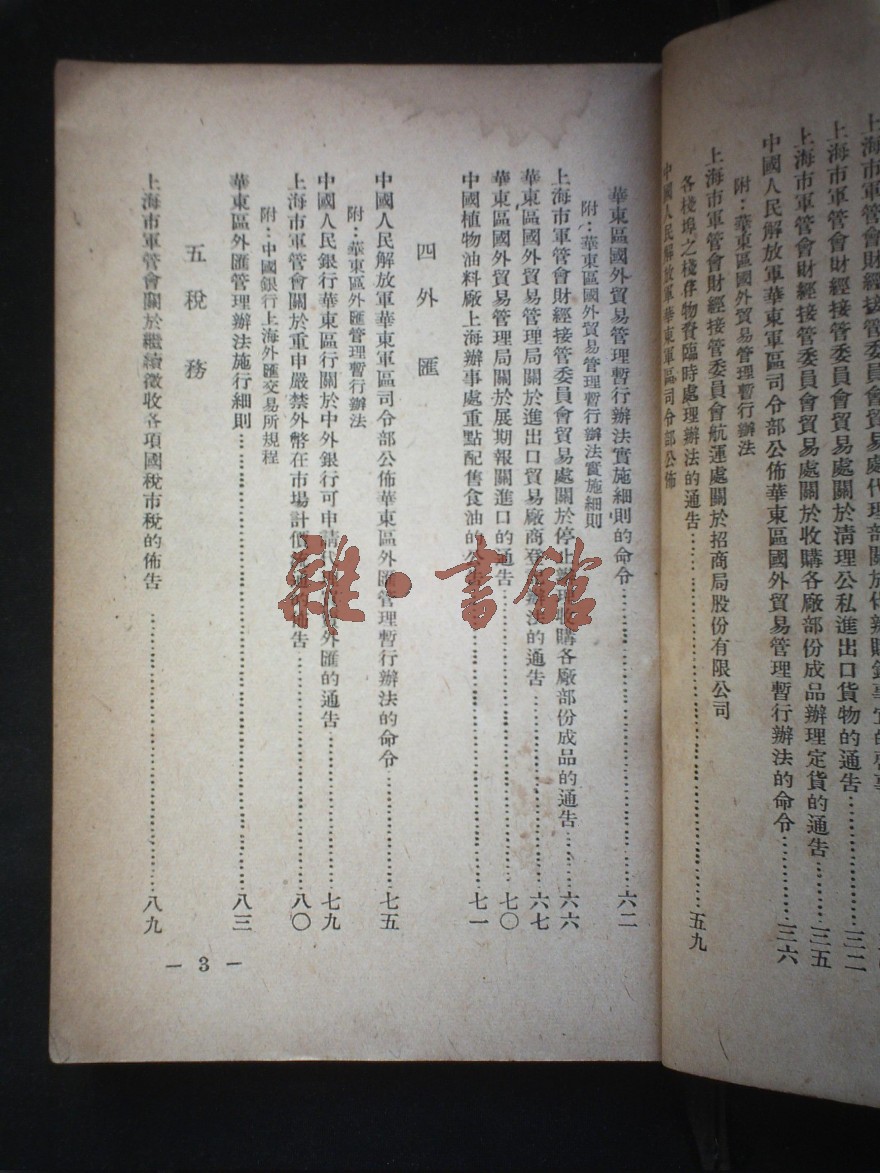 上海市軍管會財經接管委員會貿易處代理部關於
上海市軍管會財經接管委員會貿易處關於清理公私進出口貨物的通告…………三二
上海市軍管會財經接管委員會貿易處關於收購各廠部份成品辦理定貨的通告…………三五
中國人民解放軍華東軍區司令部公佈華東區國外貿易管理暫行辦法的命令…………三六
附：華東區國外貿易管理暫行辦法
上海市軍管會財經接管委員會航運處關於招商局股份有限公司
各棧埠之棧存物資臨時處理辦法的通告…………五九
中國人民解放軍華東軍區司令部公佈
華東區國外貿易管理暫行辦法實施細則的命令…………六二
附：華東區國外貿易管理暫行辦法實施細則
上海市軍管會財經接管委員會貿易處關於停止辦理收購各廠部份成品的通告…………六六
華東區國外貿易管理局關於進出口貿易廠商登記辦法的通告…………六七
華東區國外貿易管理局關於展期報關進口的通告…………七〇
中國植物油料廠上海辦事處重點配售食油的公告…………七一
四 外 匯
中國人民解放軍華東軍區司令部公佈華東區外匯管理暫行辦法的命令…………七五
附：華東區外匯管理暫行辦法
中國人民銀行華東區行關於中外銀行可申請代外匯的通告…………七九
上海市軍管會關於重申嚴禁外幣在市場計價的佈告…………八〇
附：中國銀行上海外匯交易所規程
華東區外匯管理辦法施行細則…………八三
五 稅 務
上海市軍管會關於繼續徵收各項國稅市稅的佈告…………八九
— 3 —
雜·書館